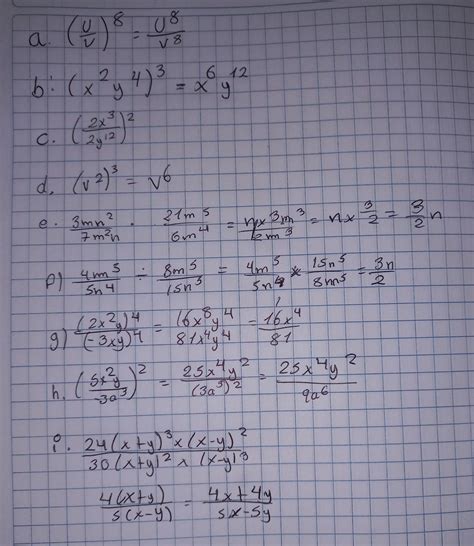 a. (U/v)^8 = U^8/v^8
b. (x^2 y^4)^3 = x^6 y^12
c. (2x^3/2y^12)^2
d. (v^2)^3 = v^6
e. 3mn^2/7m^2n · 21m^5/6m^4 = nx3m^3/2m^3 = nx 3/2 = 3/2 n
f) 4m^5/5n^4 ÷ 8m^5/15n^5 = 4m^5/5n^4 * 15n^5/8m^5 = 3n/2
g) (2x^2y)^4/(-3xy)^4 = 16x^8y^4/81x^4y^4 = 16x^4/81
h. (5x^2y/-3a^3)^2 = 25x^4y^2/(3a^3)^2 = 25x^4y^2/9a^6
i. 24(x+y)^3x(x-y)^2/30(x+y)^2x(x-y)^3
4(x+y)/5(x-y) = 4x+4y/5x-5y